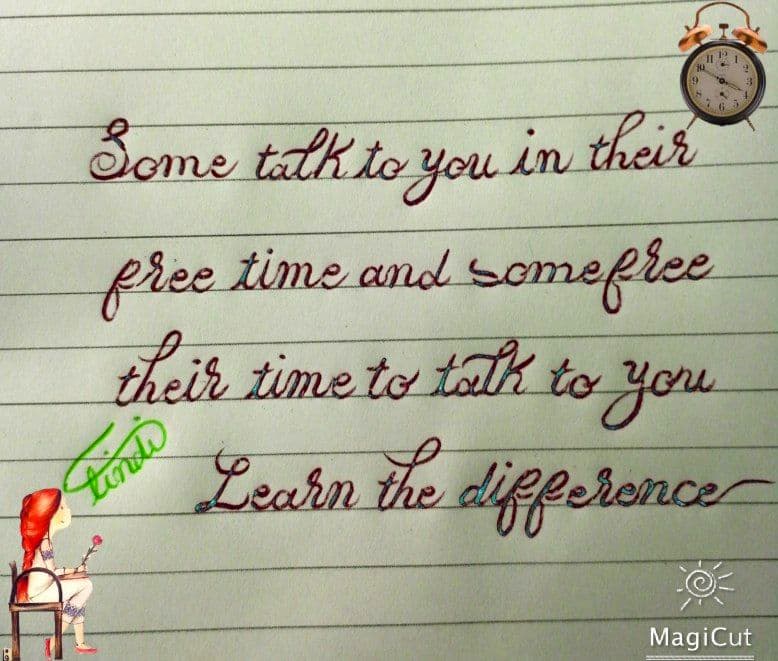 Some talk to you in their
free time and some free
their time to talk to you
Learn the difference
MagiCut